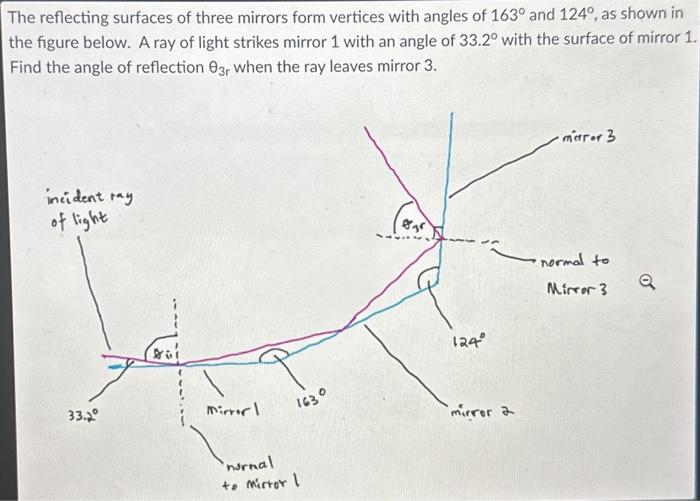 The reflecting surfaces of three mirrors form vertices with angles of 163° and 124°, as shown in
the figure below. A ray of light strikes mirror 1 with an angle of 33.2° with the surface of mirror 1.
Find the angle of reflection θ3r when the ray leaves mirror 3.
mirror 3
incident ray
of light
θ3r
normal to
Mirror 3
θ1i
124°
33.2°
Mirror 1
163°
mirror 2
normal
to Mirror 1